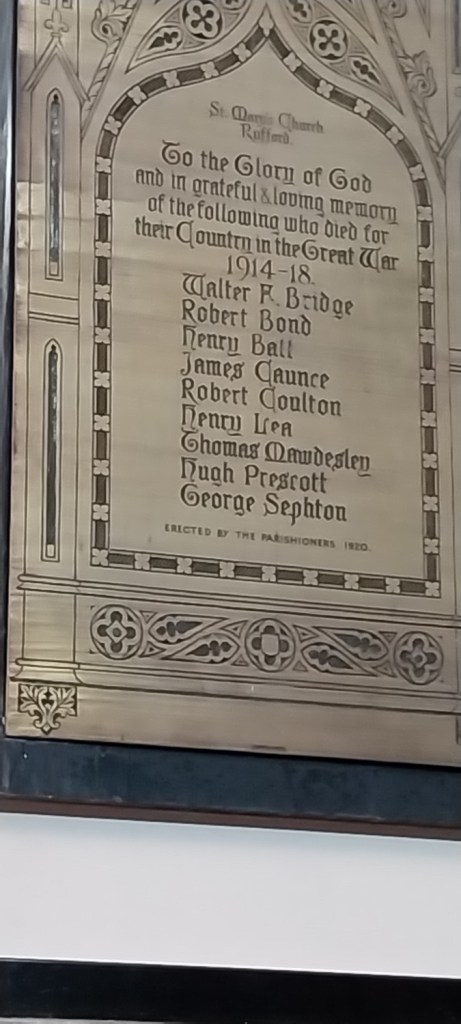 St. Mary's Church
Rufford.
To the Glory of God
and in grateful & loving memory
of the following who died for
their Country in the Great War
1914-18.
Walter F. Bridge
Robert Bond
Henry Ball
James Caunce
Robert Coulton
Henry Lea
Thomas Mawdesley
Hugh Prescott
George Sephton
ERECTED BY THE PARISHIONERS 1920.